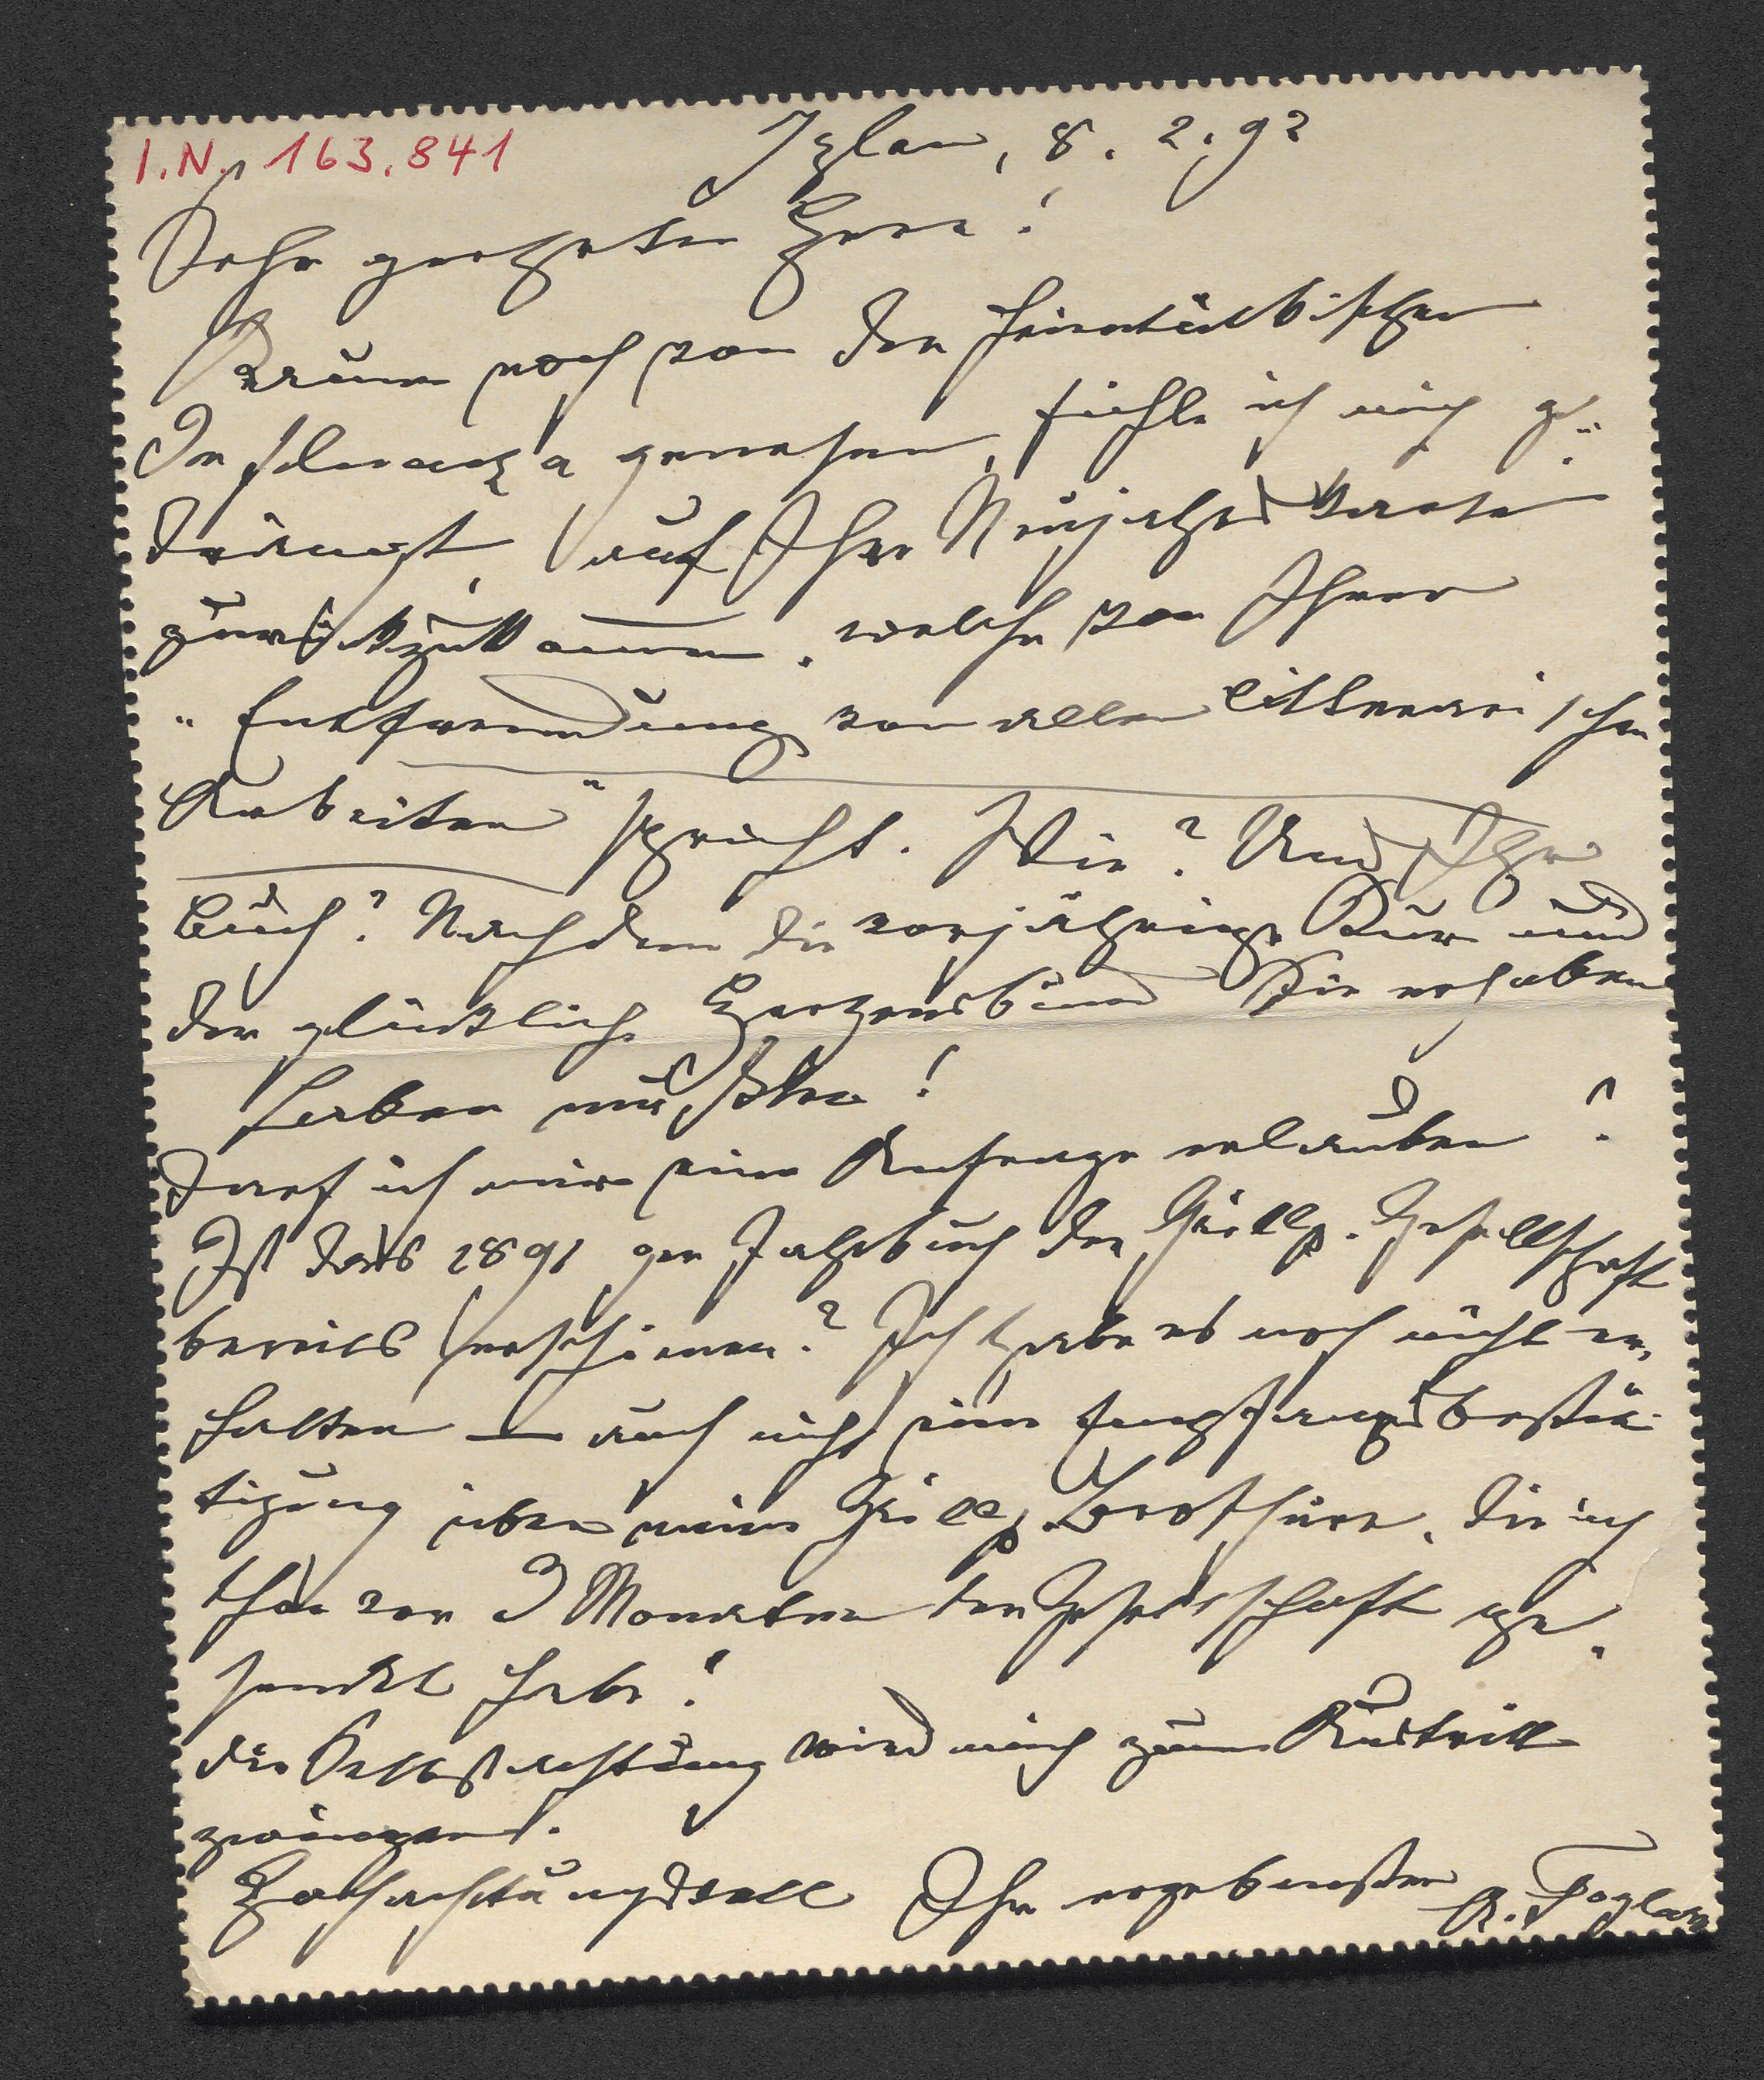 I.N. 163.841
Iglau, 8. 2. 92
Sehr geehrter Herr!
Kaum noch von der heimtückischen
Influenza genesen, fühle ich mich ge-
drängt, auf Ihre Neujahrskarte
zurückzukommen, welche von Ihrer
"Entfremdung von allen litterarischen
Arbeiten" spricht. Wie? Und Ihr
Buch? Nachdem die vorjährige Kur und
der glückliche Herzensbund Sie erhoben
haben mußten!
Darf ich mir eine Anfrage erlauben?
Ist das 1891 ger Jahrbuch der Grillp. Gesellschaft
bereits erschienen? Ich habe es noch nicht er-
halten — auch nicht eine Empfangsbestä-
tigung über meine Grillp. Broschüre, die ich
schon vor 3 Monaten der Gesellschaft ge-
sendet habe!
Die Selbstachtung wird mich zum Austritt
zwingen.
Hochachtungsvoll Ihr ergebenster
A. Foglar